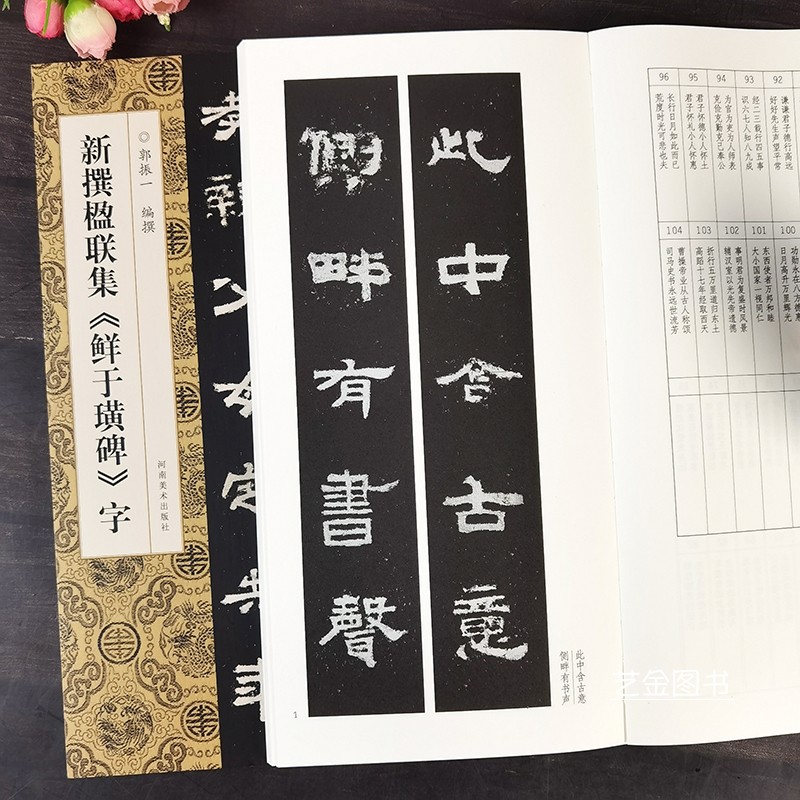 新撰楹联集《鲜于璜碑》字
◎郭振一 编撰
河南美术出版社
此中含古意
側畔有書聲
此中含古意
侧畔有书声
1
96
长行日月如此而已
荒度时光可悲也夫
95
君子怀德小人怀土
君子怀礼小人怀惠
94
为官为吏为人师表
克俭克勤克己奉公
93
经二三载行四五事
识六七人知八九成
92
谦谦君子德行高远
好好先生声望平常
104
曹操帝业从古人称颂
司马史书永远世流芳
103
折行五万里道归东土
高蹈十七年经取西天
102
事明君为复盛时风景
辅汉室以光先帝遗德
101
东西使者万邦和睦
大小国家一视同仁
100
功勋永在八方德惠
日月高升万里辉光
艺金图书